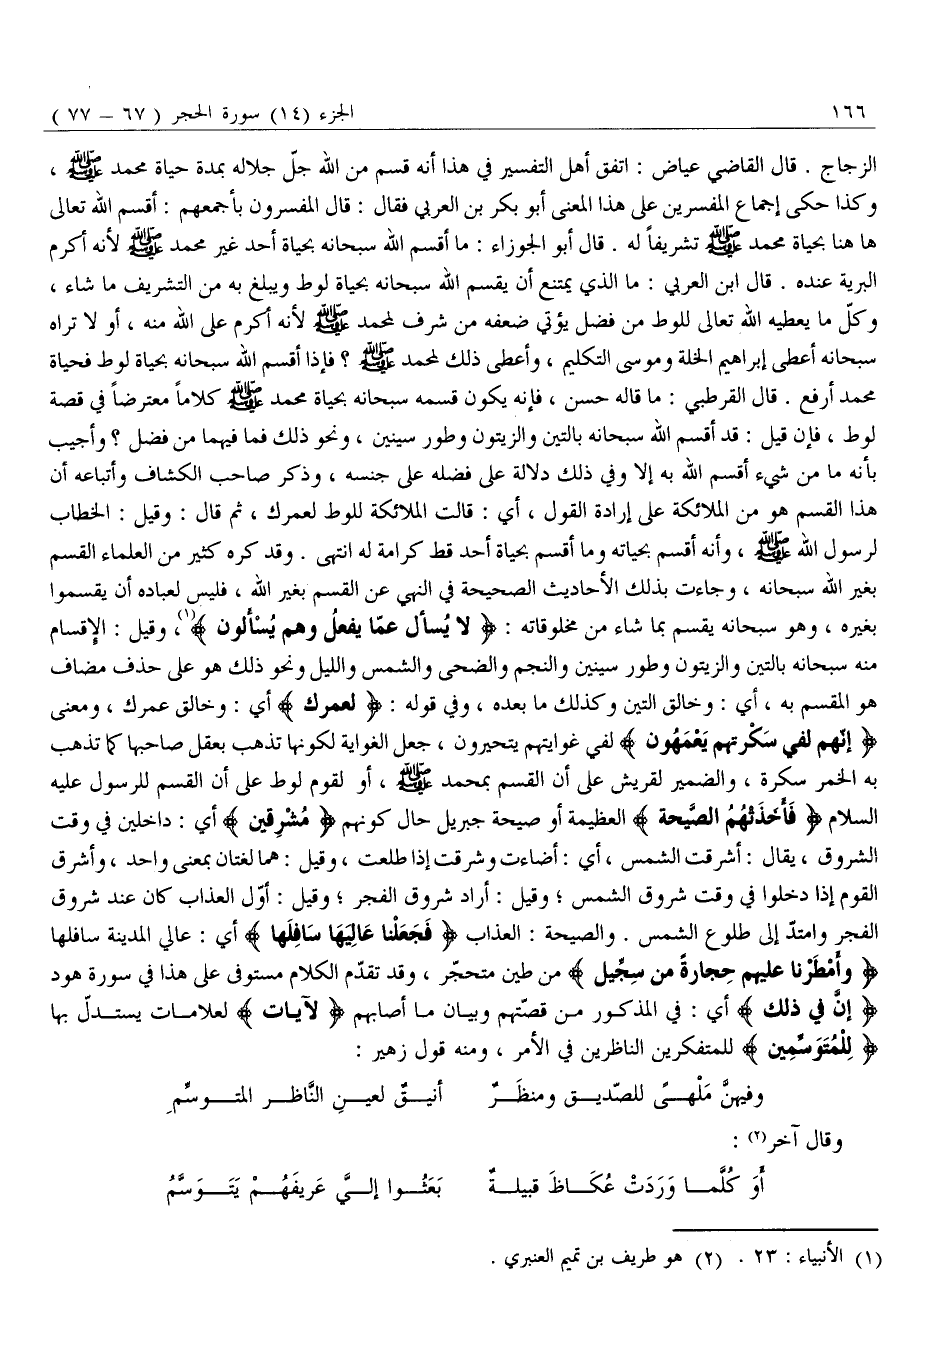 ١٦٦ الجزء (١٤) سورة الحجر ( ٦٧ – ٧٧ )
الزجاج . قال القاضي عياض : اتفق أهل التفسير في هذا أنه قسم من الله جلّ جلاله بمدة حياة محمد ﷺ ،
وكذا حكى إجماع المفسرين على هذا المعنى أبو بكر بن العربي فقال : قال المفسرون بأجمعهم : أقسم الله تعالى
ها هنا بحياة محمد ﷺ تشريفاً له . قال أبو الجوزاء : ما أقسم الله سبحانه بحياة أحد غير محمد ﷺ لأنه أكرم
البرية عنده . قال ابن العربي : ما الذي يمتنع أن يقسم الله سبحانه بحياة لوط ويبلغ به من التشريف ما شاء ،
وكلّ ما يعطيه الله تعالى للوط من فضل يؤتي ضعفه من شرف لمحمد ﷺ لأنه أكرم على الله منه ، أو لا تراه
سبحانه أعطى إبراهيم الخلة وموسى التكليم ، وأعطى ذلك لمحمد ﷺ ؟ فإذا أقسم الله سبحانه بحياة لوط فحياة
محمد أرفع . قال القرطبي : ما قاله حسن ، فإنه يكون قسمه سبحانه بحياة محمد ﷺ كلاماً معترضاً في قصة
لوط ، فإن قيل : قد أقسم الله سبحانه بالتين والزيتون وطور سينين ، ونحو ذلك فما فيهما من فضل ؟ وأجيب
بأنه ما من شيء أقسم الله به إلا وفي ذلك دلالة على فضله على جنسه ، وذكر صاحب الكشاف وأتباعه أن
هذا القسم هو من الملائكة على إرادة القول ، أي : قالت الملائكة للوط لعمرك ، ثم قال : وقيل : الخطاب
لرسول الله ﷺ ، وأنه أقسم بحياته وما أقسم بحياة أحد قط كرامة له انتهى . وقد كره كثير من العلماء القسم
بغير الله سبحانه ، وجاءت بذلك الأحاديث الصحيحة في النهي عن القسم بغير الله ، فليس لعباده أن يقسموا
بغيره ، وهو سبحانه يقسم بما شاء من مخلوقاته : ﴿ لا يُسأل عمّا يفعلُ وهم يُسْألون ﴾(١)، وقيل : الإِقسام
منه سبحانه بالتين والزيتون وطور سينين والنجم والضحى والشمس والليل ونحو ذلك هو على حذف مضاف
هو المقسم به ، أي : وخالق التين وكذلك ما بعده ، وفي قوله : ﴿ لعمرك ﴾ أي : وخالق عمرك ، ومعنى
﴿ إنّهم لفي سَكْرتهم يَعْمَهُون ﴾ لفي غوايتهم يتحيرون ، جعل الغواية لكونها تذهب بعقل صاحبها كما تذهب
به الخمر سكرة ، والضمير لقريش على أن القسم بمحمد ﷺ ، أو لقوم لوط على أن القسم للرسول عليه
السلام ﴿ فَأَخَذَتْهُمُ الصَّيحة ﴾ العظيمة أو صيحة جبريل حال كونهم ﴿ مُشْرِقين ﴾ أي : داخلين في وقت
الشروق ، يقال : أشرقت الشمس ، أي : أضاءت وشرقت إذا طلعت ، وقيل : هما لغتان بمعنى واحد ، وأشرق
القوم إذا دخلوا في وقت شروق الشمس ؛ وقيل : أراد شروق الفجر ؛ وقيل : أوّل العذاب كان عند شروق
الفجر وامتدّ إلى طلوع الشمس . والصيحة : العذاب ﴿ فَجَعَلْنا عَالِيَهَا سافِلَها ﴾ أي : عالي المدينة سافلها
﴿ وأَمْطَرْنا عليهم حِجارةً من سِجِّيل ﴾ من طين متحجّر ، وقد تقدّم الكلام مستوفى على هذا في سورة هود
﴿ إنَّ في ذلك ﴾ أي : في المذكور من قصّتهم وبيان ما أصابهم ﴿ لآيات ﴾ لعلامات يستدلّ بها
﴿ لِلْمُتَوَسِّمِين ﴾ للمتفكرين الناظرين في الأمر ، ومنه قول زهير :
وفيهنَّ مَلْهىً للصّديق ومنظَرٌ أنيقٌ لعينِ النَّاظر المتوسِّمِ
وقال آخر(٢) :
أَوَ كُلَّما وَرَدَتْ عُكَاظَ قبيلةٌ بَعَثُوا إليَّ عَريفَهُمْ يَتَوَسَّمُ
(١) الأنبياء : ٢٣ . (٢) هو طريف بن تميم العنبري .